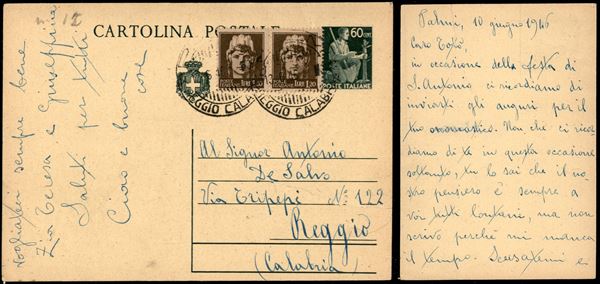 CARTOLINA POSTALE
n. 12
60 CENT
POSTE ITALIANE
POSTE ITALIANE LIRE 1,20
POSTE ITALIANE LIRE 1,20
REGGIO CALABRIA
REGGIO CALABRIA
Al Signor Antonio
De Salvo
Via Tripepi N° 122
Reggio
(Calabria)
vogliatevi sempre bene
Zia Teresa e Giuseppina
Saluti per tutti
Ciao e buone
cose
Palmi, 10 giugno 1946
Caro Totò,
in occasione della festa di
S. Antonio ci ricordiamo di
inviarti gli auguri per il
tuo onomastico. Non che ci ricor
diamo di te in questa occasione
soltanto, tu lo sai che il no
stro pensiero è sempre a
voi tutti lontani, ma non
scrivo perché mi manca
il tempo. Scusatemi e